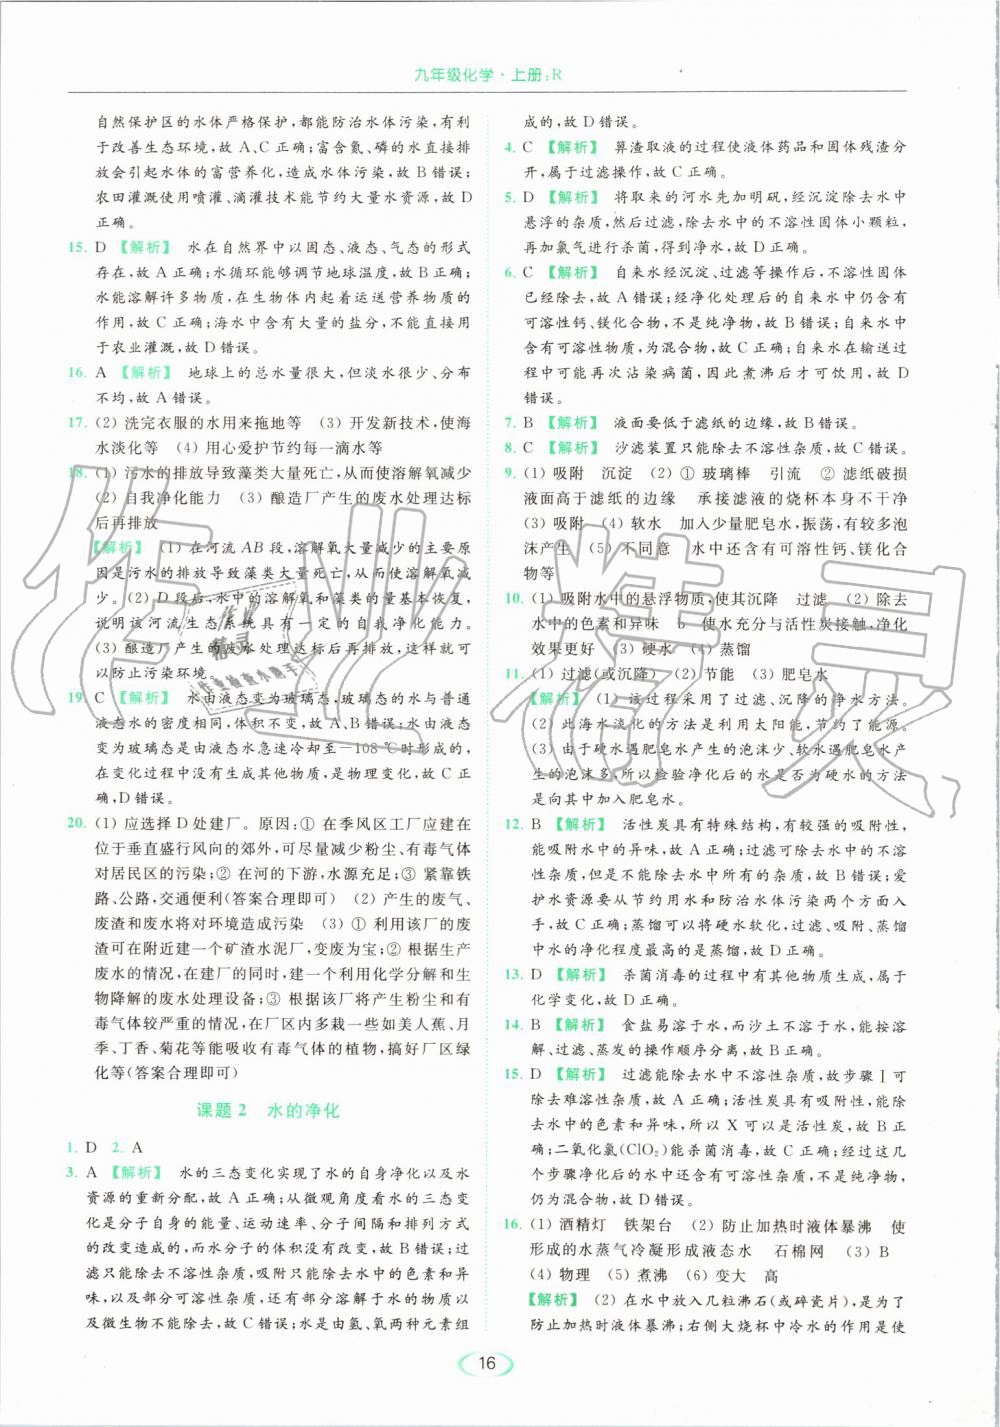 九年级化学·上册:R
自然保护区的水体严格保护,都能防治水体污染,有利
于改善生态环境,故 A、C 正确;富含氮、磷的水直接排
放会引起水体的富营养化,造成水体污染,故 B 错误;
农田灌溉使用喷灌、滴灌技术能节约大量水资源,故 D
正确。
15. D 【解析】 水在自然界中以固态、液态、气态的形式
存在,故 A 正确;水循环能够调节地球温度,故 B 正确;
水能溶解许多物质,在生物体内起着运送营养物质的
作用,故 C 正确;海水中含有大量的盐分,不能直接用
于农业灌溉,故 D 错误。
16. A 【解析】 地球上的总水量很大,但淡水很少、分布
不均,故 A 错误。
17. (2) 洗完衣服的水用来拖地等 (3) 开发新技术,使海
水淡化等 (4) 用心爱护节约每一滴水等
18. (1) 污水的排放导致藻类大量死亡,从而使溶解氧减少
(2) 自我净化能力 (3) 酿造厂产生的废水处理达标
后再排放
【解析】 (1) 在河流 AB 段,溶解氧大量减少的主要原
因是污水的排放导致藻类大量死亡,从而使溶解氧减
少。(2) D 段后,水中的溶解氧和藻类的量基本恢复,
说明该河流生态系统具有一定的自我净化能力。
(3) 酿造厂产生的废水处理达标后再排放,这样就可
以防止污染环境。
19. C 【解析】 水由液态变为玻璃态,玻璃态的水与普通
液态水的密度相同,体积不变,故 A、B 错误;水由液态
变为玻璃态是由液态水急速冷却至-108℃时形成的,
在变化过程中没有生成其他物质,是物理变化,故 C 正
确,D 错误。
20. (1) 应选择 D 处建厂。原因:① 在季风区工厂应建在
位于垂直盛行风向的郊外,可尽量减少粉尘、有毒气体
对居民区的污染;② 在河的下游,水源充足;③ 紧靠铁
路、公路,交通便利(答案合理即可) (2) 产生的废气、
废渣和废水将对环境造成污染 (3) ① 利用该厂的废
渣可在附近建一个矿渣水泥厂,变废为宝;② 根据生产
废水的情况,在建厂的同时,建一个利用化学分解和生
物降解的废水处理设备;③ 根据该厂将产生粉尘和有
毒气体较严重的情况,在厂区内多栽一些如美人蕉、月
季、丁香、菊花等能吸收有毒气体的植物,搞好厂区绿
化等(答案合理即可)
课题 2 水的净化
1. D 2. A
3. A 【解析】 水的三态变化实现了水的自身净化以及水
资源的重新分配,故 A 正确;从微观角度看水的三态变
化是分子自身的能量、运动速率、分子间隔和排列方式
的改变造成的,而水分子的体积没有改变,故 B 错误;过
滤只能除去不溶性杂质,吸附只能除去水中的色素和异
味,以及部分可溶性杂质,还有部分溶解于水的物质以
及微生物不能除去,故 C 错误;水由氢、氧两种元素组
成的,故 D 错误。
4. C 【解析】 算渣取液的过程使液体药品和固体残渣分
开,属于过滤操作,故 C 正确。
5. D 【解析】 将取来的河水先加明矾,经沉淀除去水中
悬浮的杂质,然后过滤,除去水中的不溶性固体小颗粒,
再加氯气进行杀菌,得到净水,故 D 正确。
6. C 【解析】 自来水经沉淀、过滤等操作后,不溶性固体
已经除去,故 A 错误;经净化处理后的自来水中仍含有
可溶性钙、镁化合物,不是纯净物,故 B 错误;自来水中
含有可溶性物质,为混合物,故 C 正确;自来水在输送过
程中可能再次沾染病菌,因此煮沸后才可饮用,故 D
错误。
7. B 【解析】 液面要低于滤纸的边缘,故 B 错误。
8. C 【解析】 沙滤装置只能除去不溶性杂质,故 C 错误。
9. (1) 吸附 沉淀 (2) ① 玻璃棒 引流 ② 滤纸破损
液面高于滤纸的边缘 承接滤液的烧杯本身不干净
(3) 吸附 (4) 软水 加入少量肥皂水,振荡,有较多泡
沫产生 (5) 不同意 水中还含有可溶性钙、镁化合
物等
10. (1) 吸附水中的悬浮物质,使其沉降 过滤 (2) 除去
水中的色素和异味 b 使水充分与活性炭接触,净化
效果更好 (3) 硬水 (4) 蒸馏
11. (1) 过滤(或沉降) (2) 节能 (3) 肥皂水
【解析】 (1) 该过程采用了过滤、沉降的净水方法。
(2) 此海水淡化的方法是利用太阳能,节约了能源。
(3) 由于硬水遇肥皂水产生的泡沫少、软水遇肥皂水产
生的泡沫多,所以检验净化后的水是否为硬水的方法
是向其中加入肥皂水。
12. B 【解析】 活性炭具有特殊结构,有较强的吸附性,
能吸附水中的异味,故 A 正确;过滤可除去水中的不溶
性杂质,但不能除去水中所有的杂质,故 B 错误;爱
护水资源要从节约用水和防治水体污染两个方面入
手,故 C 正确;蒸馏可以将硬水软化,过滤、吸附、蒸馏
中水的净化程度最高的是蒸馏,故 D 正确。
13. D 【解析】 杀菌消毒的过程中有其他物质生成,属于
化学变化,故 D 正确。
14. B 【解析】 食盐易溶于水,而沙土不溶于水,能按溶
解、过滤、蒸发的操作顺序分离,故 B 正确。
15. D 【解析】 过滤能除去水中不溶性杂质,故步骤Ⅰ可
除去难溶性杂质,故 A 正确;活性炭具有吸附性,能除
去水中的色素和异味,所以 X 可以是活性炭,故 B 正
确;二氧化氯(ClO₂)能杀菌消毒,故 C 正确;经过以上几
个步骤净化后的水中还含有可溶性杂质,不是纯净物,
仍为混合物,故 D 错误。
16. (1) 酒精灯 铁架台 (2) 防止加热时液体暴沸 使
形成的水蒸气冷凝形成液态水 石棉网 (3) B
(4) 物理 (5) 煮沸 (6) 变大 高
【解析】 (2) 在水中放入几粒沸石(或碎瓷片),是为了
防止加热时液体暴沸;右侧大烧杯中冷水的作用是使
16
作业精灵